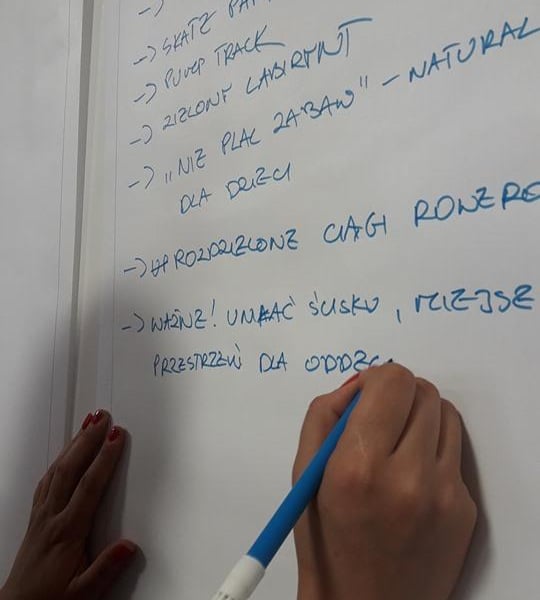 ->
-> SKATE PAR
-> PUMP TRACK
-> ZIELONY LABIRYNT
-> „NIE PLAC ZABAW" - NATURAL
DLA DZIECI
-> ROZDZIELONE CIĄGI ROWERO
-> WAŻNE! UNIKAĆ ŚCISKU, MIEJSE
PRZESTRZEŃ DLA ODDEC